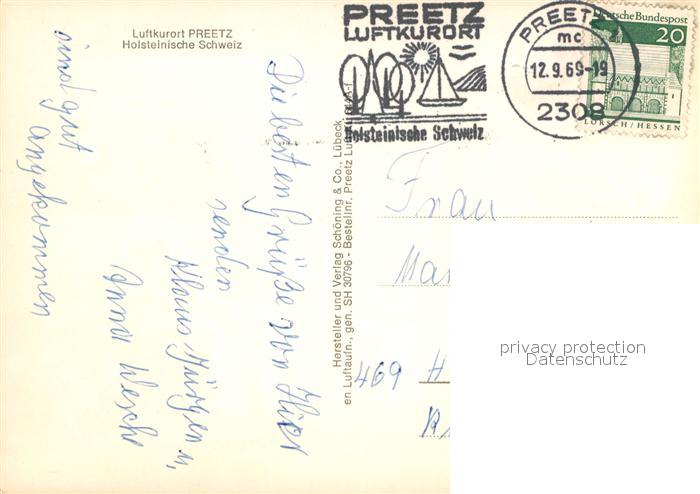 Luftkurort PREETZ
Holsteinische Schweiz
PREETZ
LUFTKURORT
Holsteinische Schweiz
PREETZ
mc
12.9.69-19
2308
Deutsche Bundespost
20
LORSCH/HESSEN
Die besten Grüße von Hier
senden
Klaus Jürgen u,
Anna Wesche
sind gut
angekommen
Hersteller und Verlag Schöning & Co., Lübeck
en Luftaufn., gen. SH 30796 - Bestellnr. Preetz
Frau
469 H
privacy protection
Datenschutz